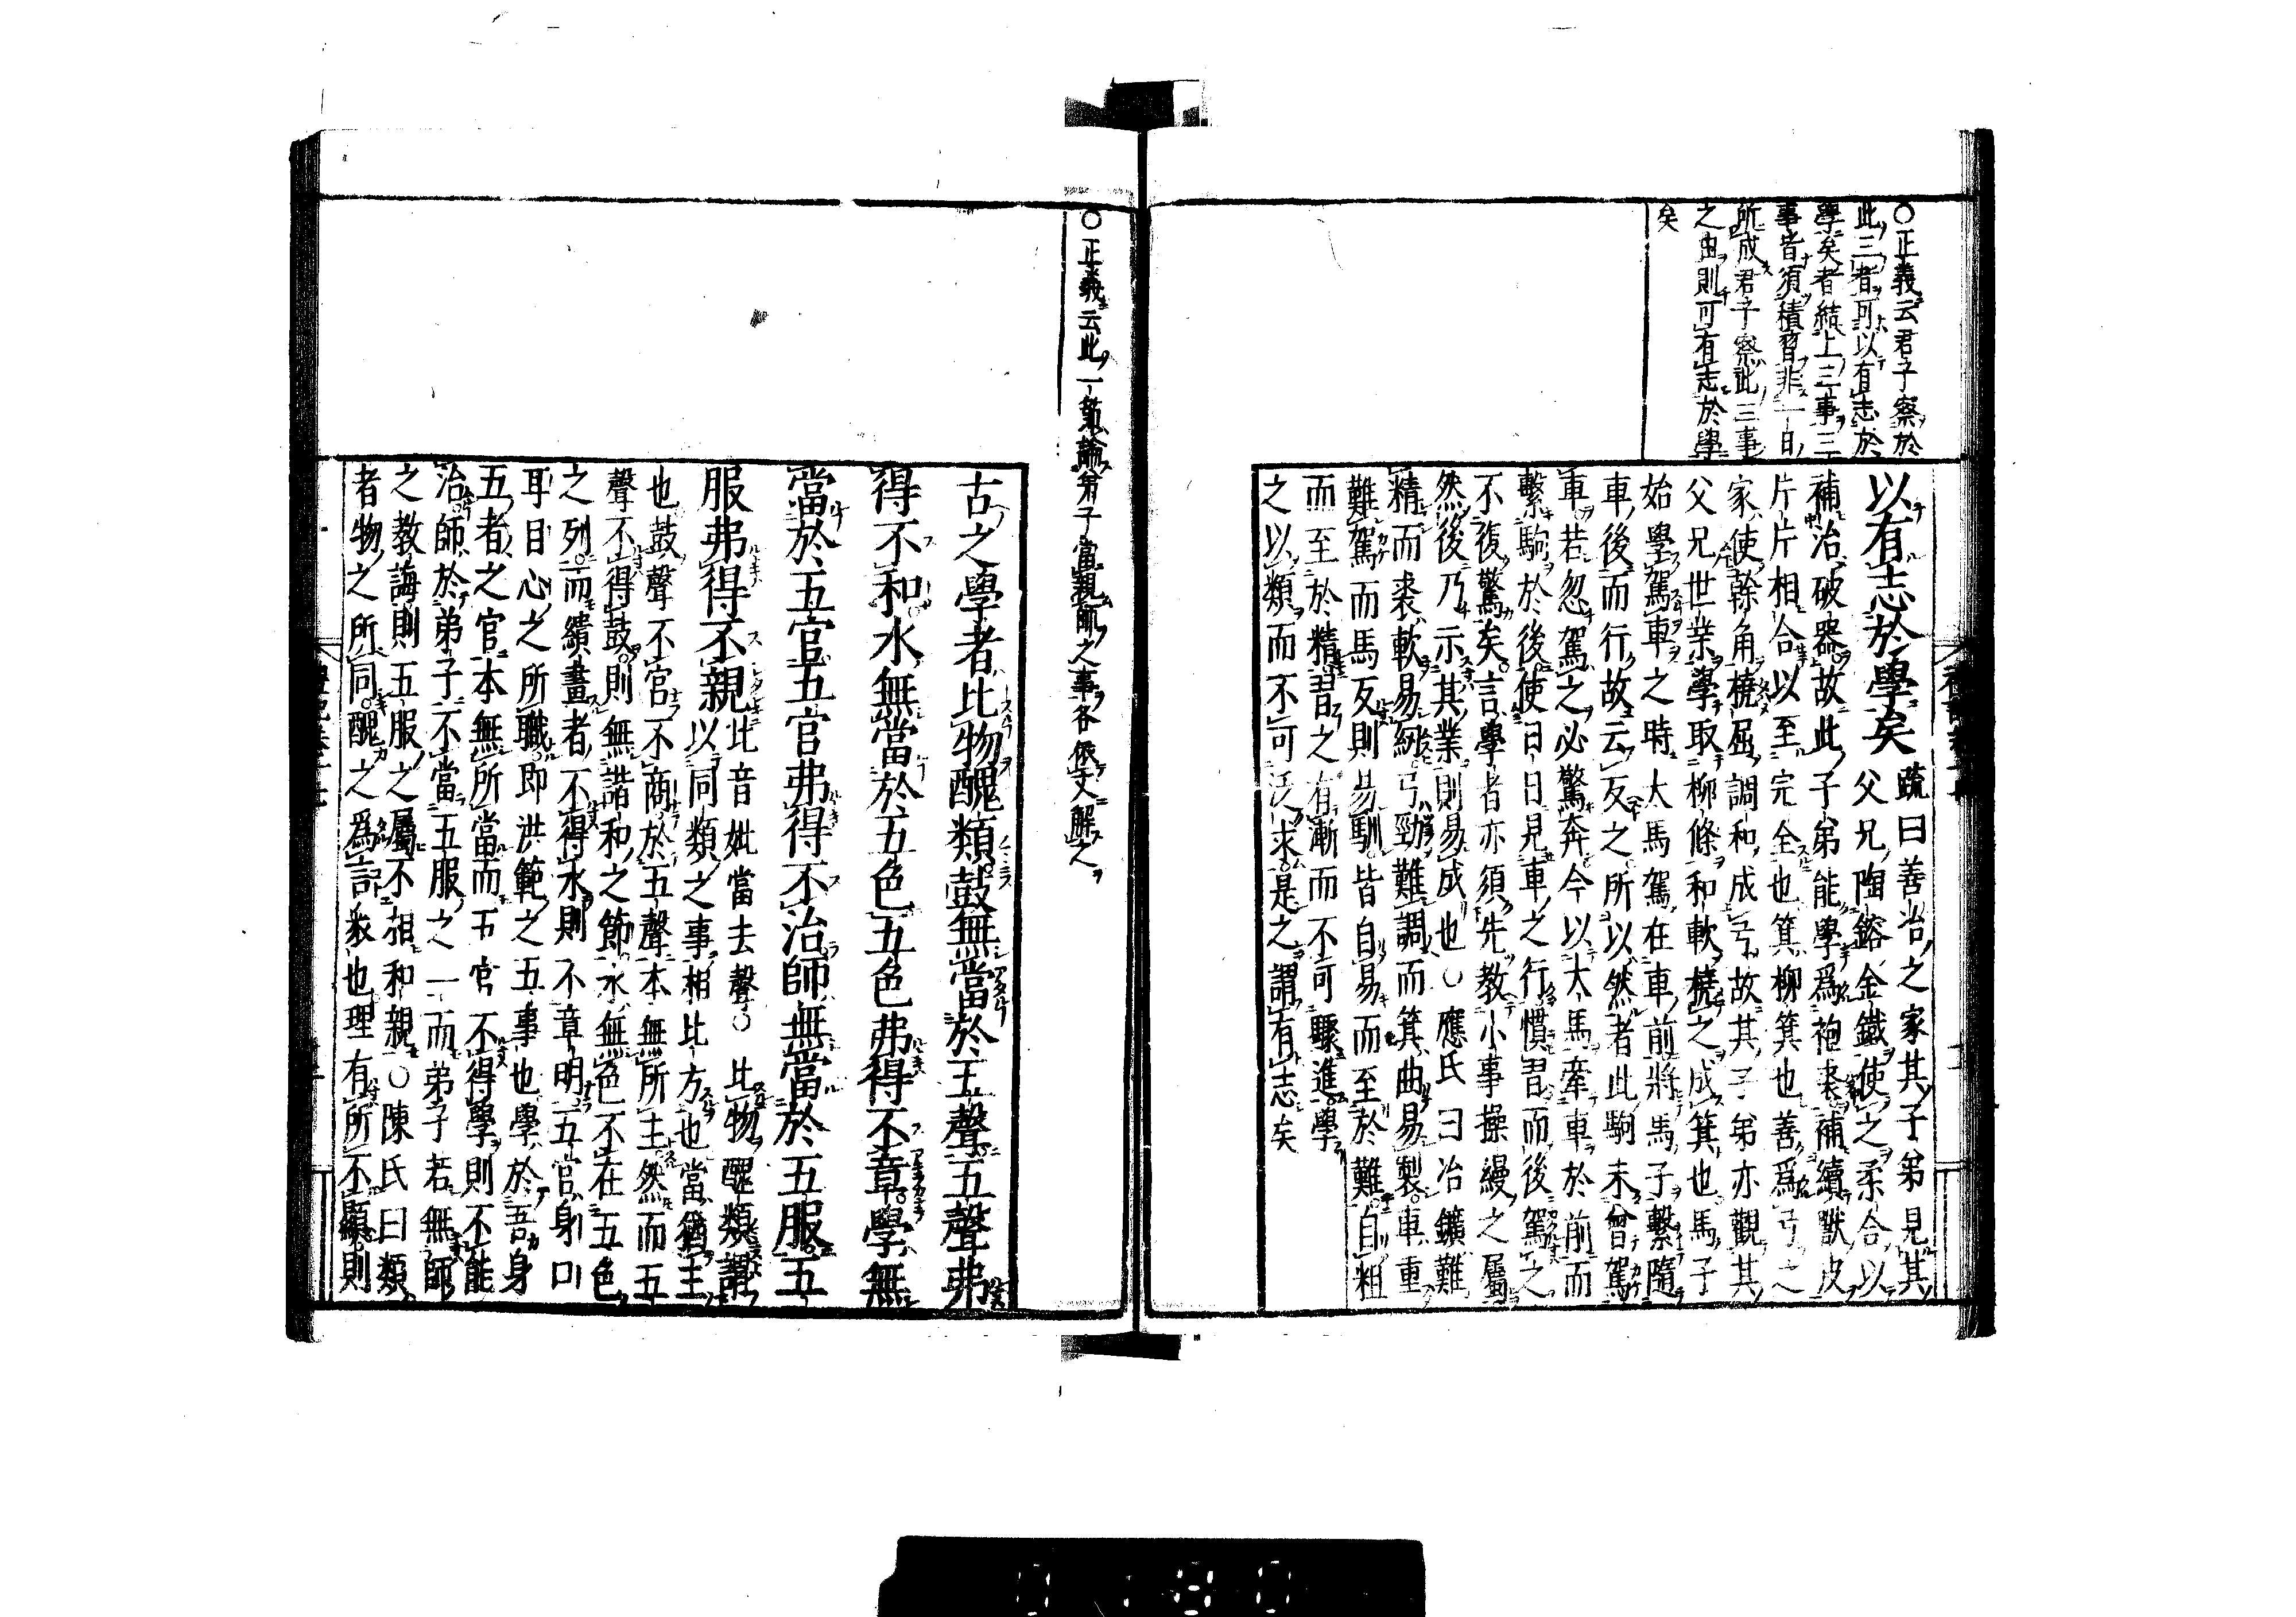 〇正義云君子察於
此三者可以有志於
學矣者結上三事三
事皆須積習非一日
所成君子察此三事
之由則可有志於學
矣
以有志於學矣 疏曰善冶之家其子弟見其
父兄陶鎔金鐵使之柔合以
補治破器故此子弟能學爲袍裘補續獸皮
片片相合以至完全也箕柳箕也善爲弓之
家使幹角撓屈調和成弓故其子弟亦觀其
父兄世業學取柳條和軟撓之成箕也馬子
始學駕車之時大馬駕在車前將馬子繫隨
車後而行故云反之所以然者此駒未曾駕
車若忽駕之必驚奔今以大馬牽車於前而
繫駒於後使日日見車之行慣習而後駕之
不復驚矣言學者亦須先教小事操縵之屬
然後乃示其業則易成也〇應氏曰冶鑛難
精而裘軟易紉弓勁難調而箕曲易製車重
難駕而馬反則易馴皆自易而至於難自粗
而至於精習之有漸而不可驟進學
之以類而不可泛求是之謂有志矣
〇正義云此一節論弟子當親師之事各依文解之
古之學者比物醜類鼓無當於五聲五聲弗
得不和水無當於五色五色弗得不章學無
當於五官五官弗得不治師無當於五服五
服弗得不親 比音妣當去聲〇比物醜類謂
以同類之事相比方也當猶主
也鼓聲不宮不商於五聲本無所主然而五
聲不得鼓則無諧和之節水無色不在五色
之列而繢畫者不得水則不章明五官身口
耳目心之所職即洪範之五事也學於吾身
五者之官本無所當而五官不得學則不能
治師於弟子不當五服之一而弟子若無師
之教誨則五服之屬不相和親〇陳氏曰類
者物之所同醜之爲言衆也理有所不顯則